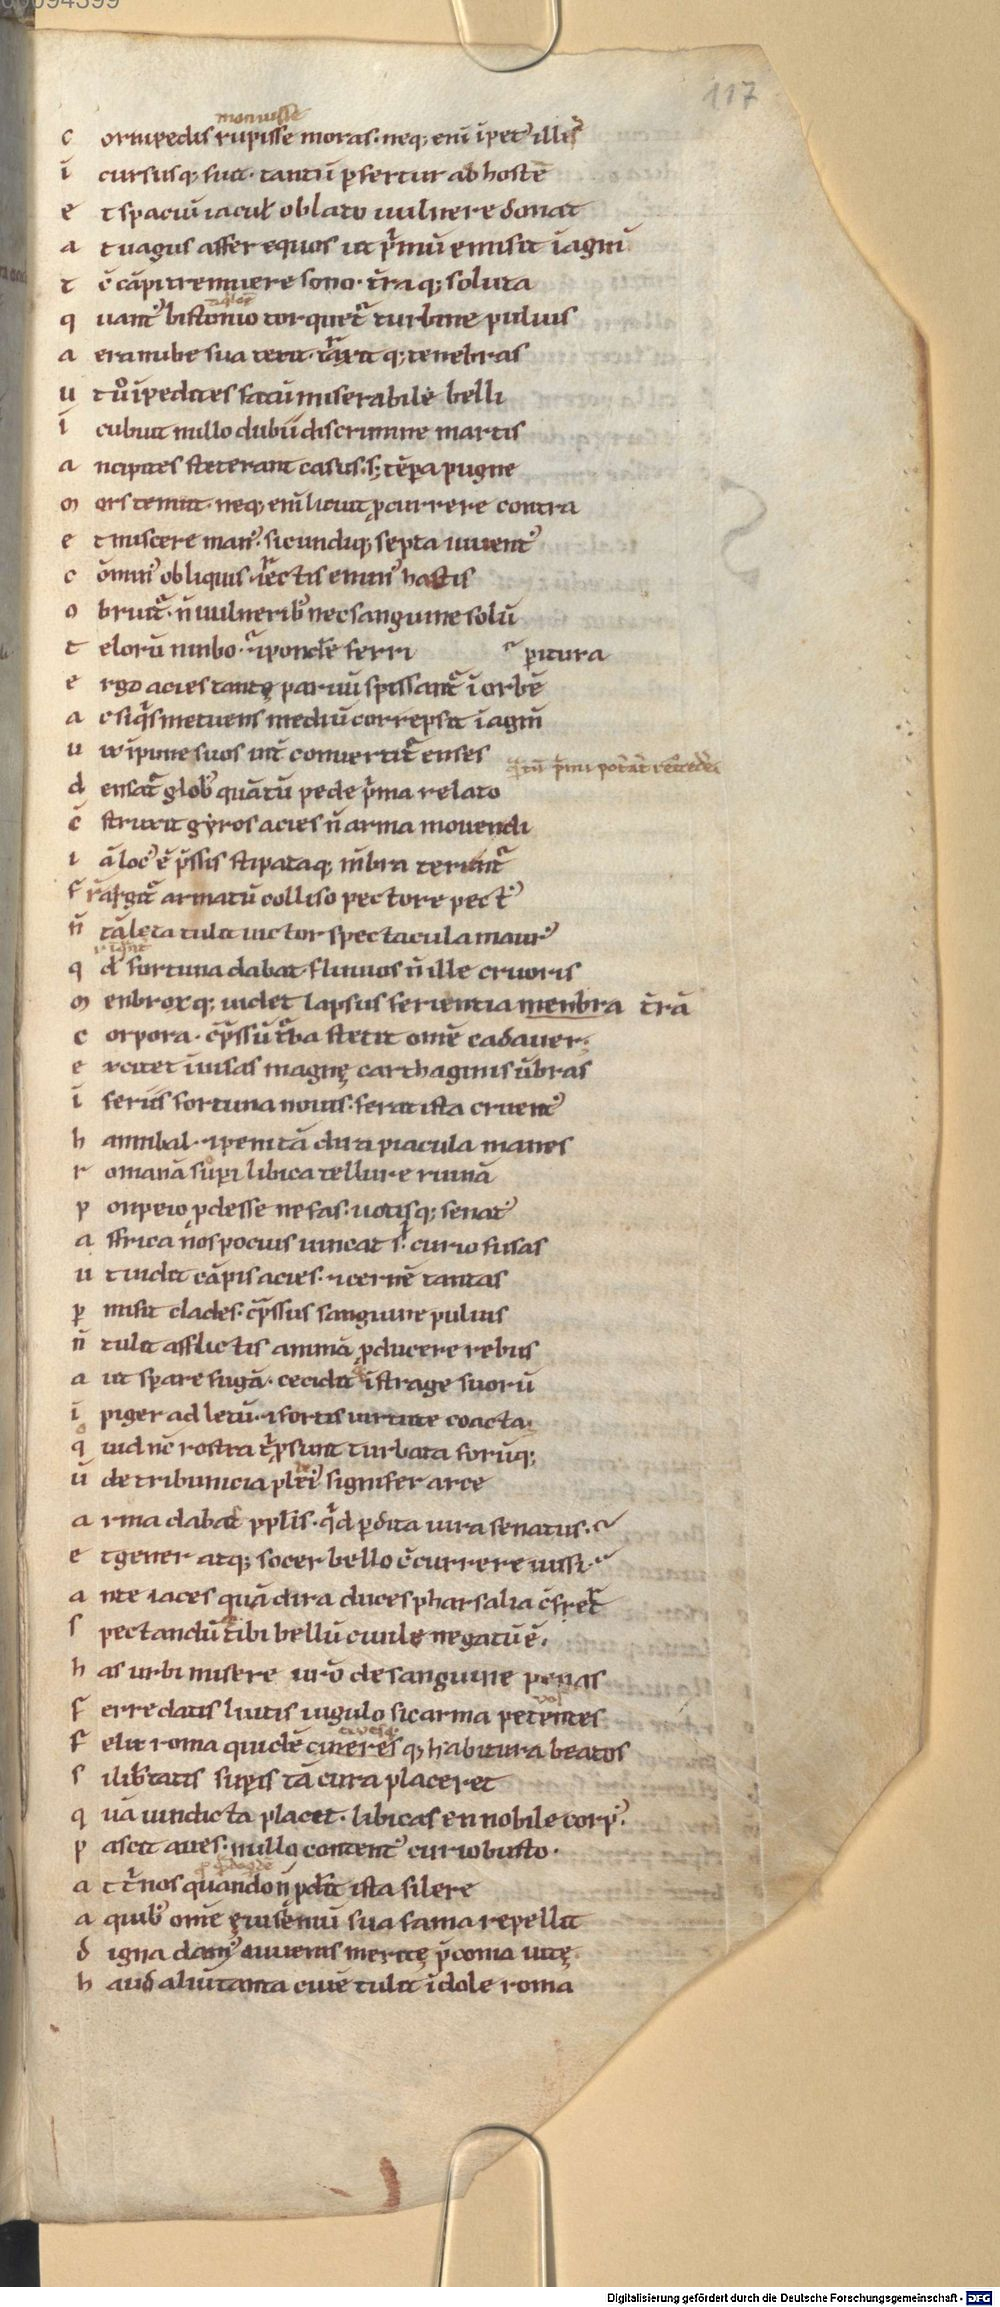 117
monuisse
c ornipedis rupisse moras. neq; eni ĩpet' illis
ĩ cursusq; fuit. tantũ ꝑfertur ab hostẽ
e t spaciũ iacul' oblato uulnere donat
a t uagus affer equos ut p̃mũ emisit ĩ agm̃
t c̃ cãpi tremuere sono. t̃raq; soluta
q uant' bistonio torquet᷑ turbine puluis
a era nube sua texit. t᷑xitq; tenebras
u t u̾o ĩ pedites fatũ miserabile belli
ĩ cubuit nullo dubiũ discrimine martis
a ncipites steterant casus. s; tẽpa pugne
m ors tenuit. neq; eni licuit ꝓcurrere contra
e t miscere man'. sic undiq; septa iuuent'
c õmin' obliquis. ⁊ rectis emin' hastis
o bruit᷑. ñ uulnerib' nec sanguine solũ
t elorũ nimbo. ⁊ ponde ferri ꝑitura
e rgo acies tantę paruũ spissant᷑ ĩ orbẽ
a c siq̃s metuens mediũ correpsit ĩ agm̃
u ix ĩpune suos int̃ conuertit᷑ enses
d ensat᷑ glob' quãtũ pede p̃ma relato
c̃ struxit gyros acies ñ arma mouendi
i ã loc' ẽ p̃ssis stipataq; m̃bra terunt᷑
f rãgit᷑ armatũ colliso pectore pect'
ñ tã lęta tulit uictor spectacula maur'
q d' fortuna dabat. fluuios ñ ille cruoris
m enbroꝝq; uidet lapsus ferientia menbra t̃rã
c orpora. cp̃ssũ t᷑ba stetit omẽ cadauer.
e xcitet ĩuisas magnę carthaginis ũbras
ĩ ferius fortuna nouis. ferat ista cruent'
h annibal. ⁊ peni tã dira piacula manes
r omanã supi libica tellure ruinã
p onpeio ꝓdesse nefas. uotisq; senat'
a ffrica ños pocius uincat s'. curio fusas
u t uidit cãpis acies. ⁊ cernẽ tantas
ꝑ misit clades. cp̃ssus sanguine puluis
ñ tulit afflictis animã ꝓducere rebus
a ut sperare fugã. cecidit ĩ strage suorũ
ĩ piger ad letũ. ⁊ fortis uirtute coacta.
q uid nc̃ rostra t' ꝓsunt turbata forũq;
ũ de tribunicia plei' signifer arce
a rma dabas pplis. q̾d ꝑdita iura senatus.
e t gener atq; socer bello c̃currere iussi.
a nte iaces quã dira duces pharsalia c̃fret᷑
s pectandũ tibi bellũ ciuile negatũ ẽ.
h as urbi misere ur̃o de sanguine penas
f erre datis luitis iugulo sic arma petentes
f elix roma quidẽ cineresq; habitura beatos
s i lib̾tatis supis tã cura placeret
q uã uindicta placet. libicas en nobile corp'.
p ascit aues. nullo content' curio busto.
a t t̃nos quando ñ ꝓd̾it ista silere
a quib' ome ęui seniũ sua fama repellit
d igna dam' iuuenis meritę p̃conia uitę.
h aud aliũ tanta ciuẽ tulit ĩdole roma
Digitalisierung gefördert durch die Deutsche Forschungsgemeinschaft - DFG